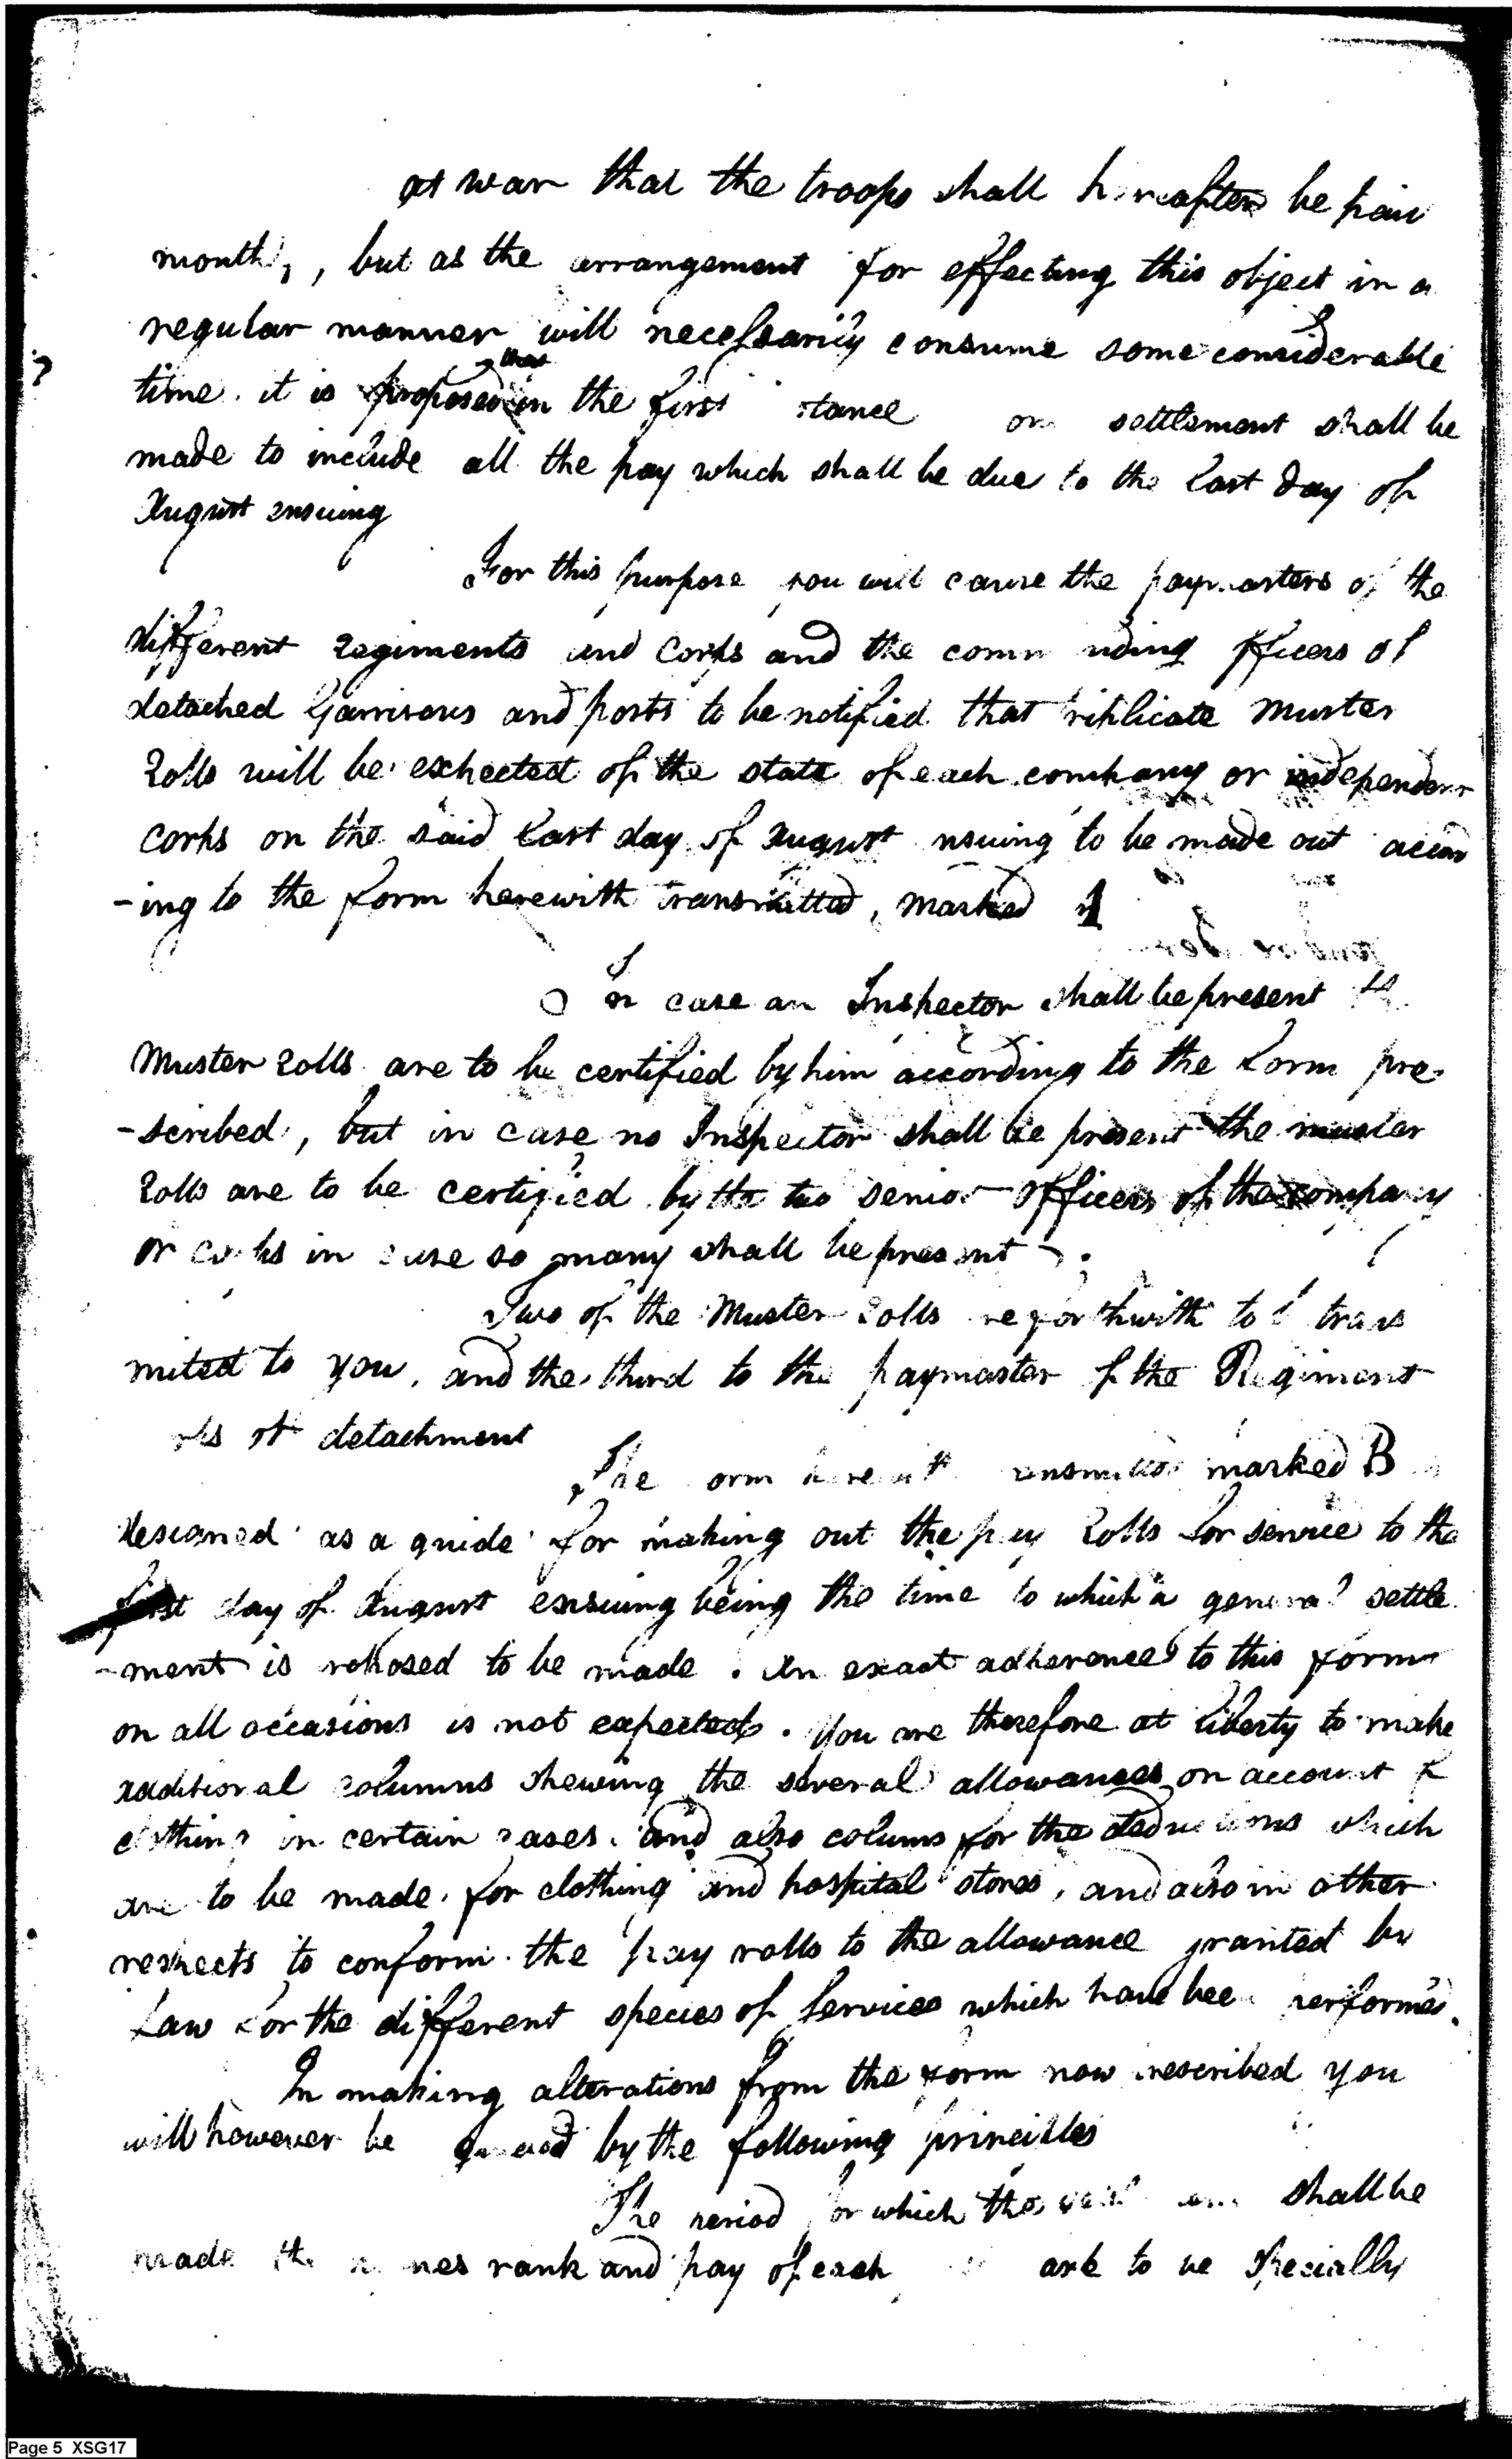 at war that the troops shall hereafter be paid
month, but as the arrangement for effecting this object in a
regular manner will necessarily consume some considerable
that
time. it is proposed in the first stance settlement shall be
made to include all the pay which shall be due to the last day of
August ensuing
For this purpose you will cause the paymasters of the
different regiments and Corps and the commanding officers of
detached Garrisons and posts to be notified that triplicate Muster
Rolls will be expected of the state of each company or independent
corps on the said last day of August ensuing to be made out accord
-ing to the form herewith transmitted, marked A
In case an Inspector shall be present the
Muster Rolls are to be certified by him according to the form pre-
-scribed, but in case no Inspector shall be present the muster
Rolls are to be certified by the two senior officers of the company
or corps in case so many shall be present.
Two of the Muster Rolls are forthwith to be trans
mited to you, and the third to the paymaster of the Regiment
detachment
The form herewith transmitted marked B
designed as a guide for making out the pay Rolls for service to the
day of August ensuing being the time to which a general settle
-ment is proposed to be made. An exact adherence to this form
on all occasions is not expected. You are therefore at liberty to make
additional columns shewing the several allowances on account of
clothing in certain cases. and also colums for the deductions which
are to be made for clothing and hospital stores, and also in other
respects to conform the pay rolls to the allowance granted by
Law for the different species of Services which have been performed.
In making alterations from the form now prescribed you
will however be by the following principles
The period for which the shall be
made the names rank and pay of each are to be specially
Page 5 XSG17